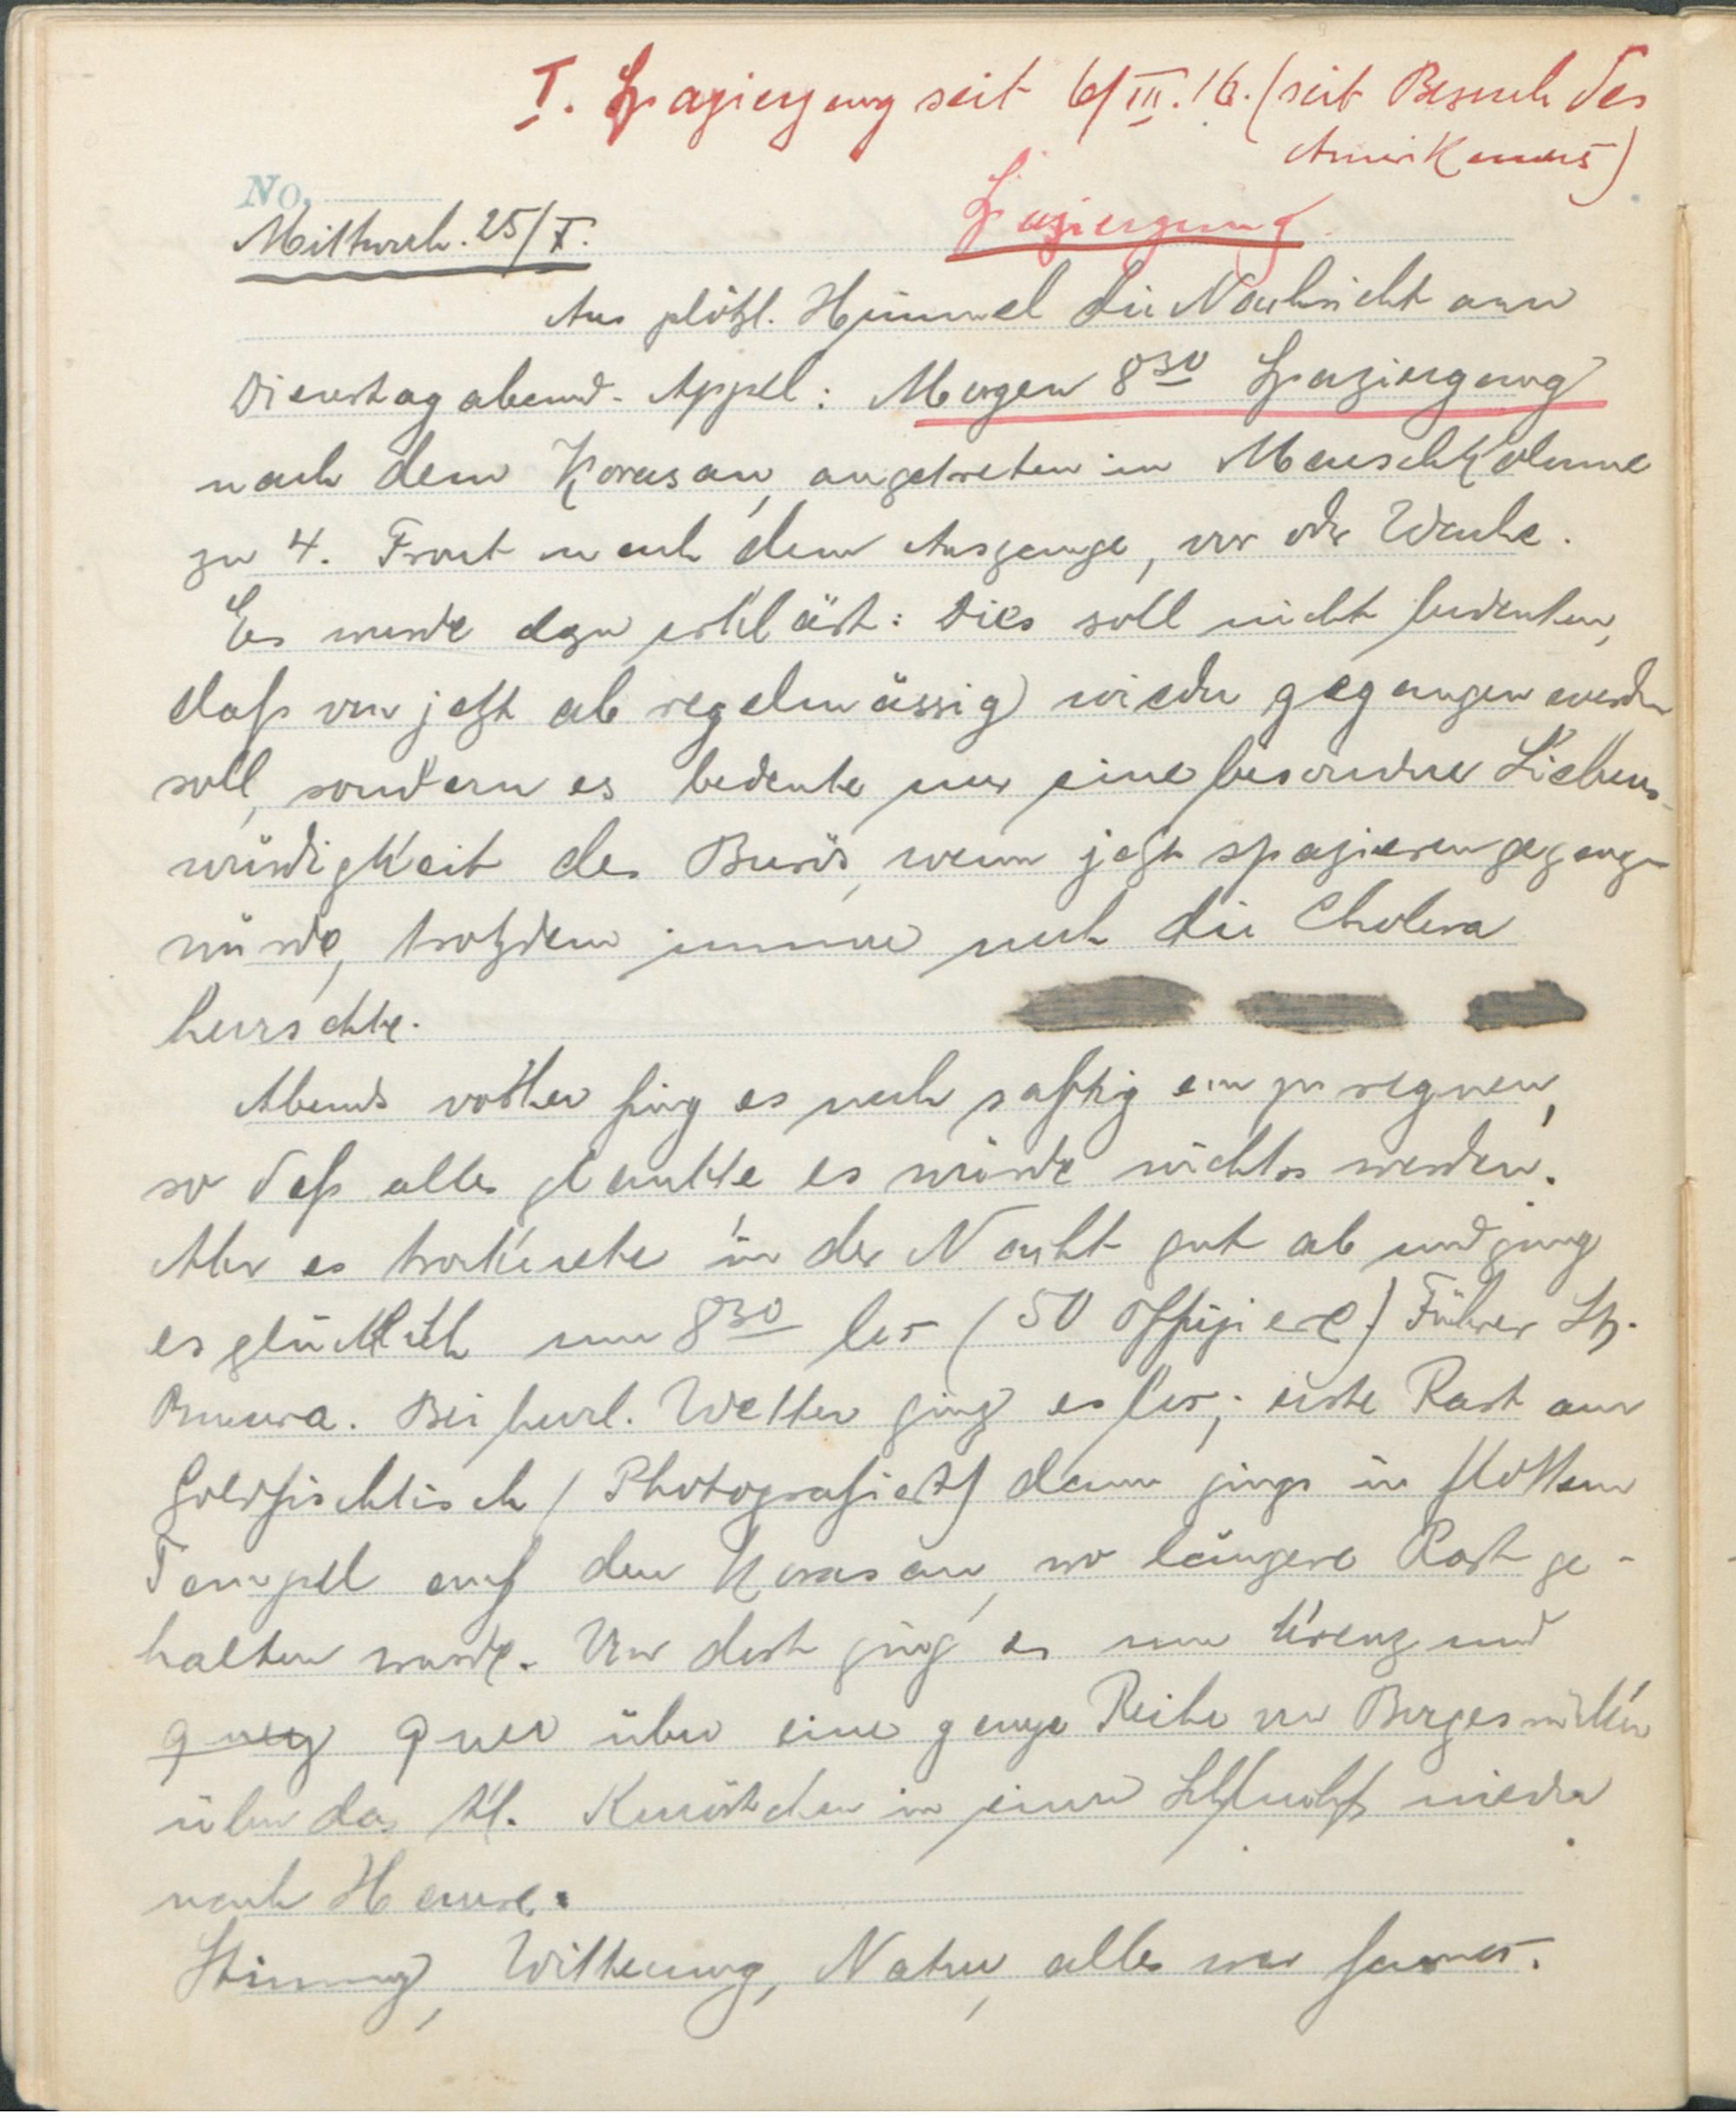 I. Spaziergang seit 6/III.16. (seit Besuch des
Amerikaners)
No.
Mittwoch. 25/X.
Spaziergang.
Aus plötzl. Himmel die Nachricht am
Dienstag abend-Appel: Morgen 8³⁰ Spaziergang
nach dem Korasan, angetreten in Marschkolonne
zu 4. Front nach dem Ausgange, vor der Wache.
Es wurde dazu erklärt: Dies soll nicht bedeuten,
daß von jetzt ab regelmässig wieder gegangen werden
soll, sondern es bedeute nur eine besondere Liebens-
würdigkeit des Burös, wenn jetzt spazierengegangen
würde, trotzdem immer noch die Cholera
herrschte.
Abends vorher fing es noch saftig an zu regnen,
so daß alles glaubte es würde nichts werden.
Aber es trocknete in der Nacht gut ab und ging
es glücklich um 8³⁰ los (50 Offiziere) Führer Lt.
Bei herrl. Wetter ging es los; erste Rast am
Goldfischtisch (Photografiert) dann gings in flottem
Tempel auf den Korasan, wo längere Rast ge-
halten wurde. Von dort ging es nun kreuz und
quer über eine ganze Reihe von Bergesrücken
über das kl. in einer Schlucht wieder
nach Hause.
Stimmung, Witterung, Natur, alles war famos.